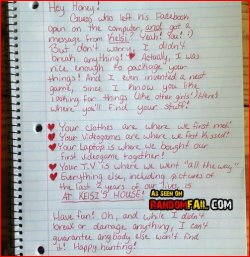 Hey Honey!
Guess who left his Facebook
open on the computer, and got a
message from KEISI? Yeah! You! :)
But don't worry, I didn't
break anything! ♥ Actually, I was
nice enough to package your
things! And I even invented a neat
game, since I know you like
looking for things like other girls! Here's
where you'll find your stuff!
♥ Your Clothes are where we first met!
♥ Your Videogames are where we first kissed!
♥ Your Laptop is where we bought our
first videogame together!
♥ Your T.V. is where we went "all the way."
♥ Everything else, including pictures of
the last 2 years of our lives, is
AT KEISI'S HOUSE!
Have fun! Oh, and while I didn't
break or damage anything, I can't
guarantee anybody else won't find
it! Happy hunting!
AS SEEN ON
RANDOMFAIL.COM